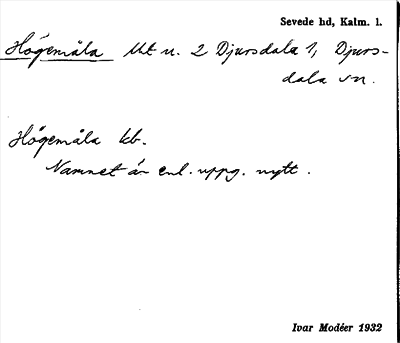 Sevede hd, Kalm. l.
Högemåla Uht u. 2 Djursdala 1, Djurs-
dala sn.
Högemåla kb.
Namnet är enl. uppg. nytt.
Ivar Modéer 1932